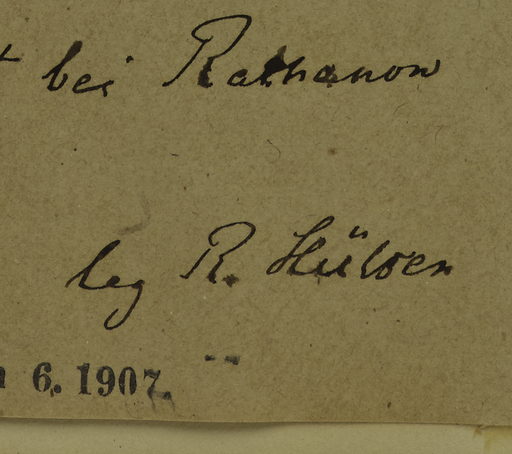 bei Rathanow
leg R. Hülsen
6. 1907.